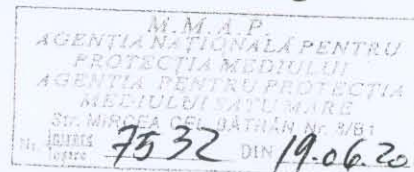 M.M.A.P.
AGENȚIA NAȚIONALĂ PENTRU
PROTECȚIA MEDIULUI
AGENȚIA PENTRU PROTECȚIA
MEDIULUI SATU MARE
Str. MIRCEA CEL BĂTRÂN Nr. 8/B1
Nr. intrare
ieșire 7532 DIN 19.06.20